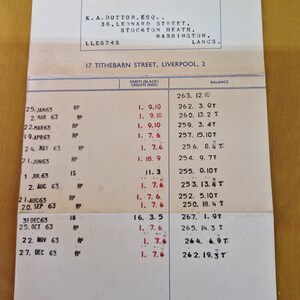 K.A.DUTTON,ESQ.,
38,LEONARD STREET,
STOCKTON HEATH,
WARRINGTON,
LLE8745 LANCS.
17 TITHEBARN STREET, LIVERPOOL, 2
DEBITS (BLACK)
CREDITS (RED) BALANCE
263. 12.10
25.JAN63 RP 1. 9.10 262. 3.0T
2. MAR 63 RP 1. 9.10 260. 13.2 T
22.MAR63 RP 1. 9.10 259. 3.4T
19.APR63 RP 1. 7.6 257. 15.10T
24. MAY 63 RP 1. 7.6 256. 8.4 T
21.JUN63 RP 1. 18.9 254. 9.7T
1 JUL63 IS 11.3 255. 0.10T
2. AUG 63 RP 1. 7.6 253. 13.4 T
21.AUG63 RP 1. 7.6 252. 5.10T
20. SEP 63 RP 1. 7.6 250. 18.4 T
31DEC63 IN 16. 3.5 267. 1.9T
25. OCT 63 RP 1. 7.6 265. 14.3 T
22. NOV 63 RP 1. 7.6 264. 6.9 T
27. DEC 63 RP 1. 7.6 262. 19.3 T